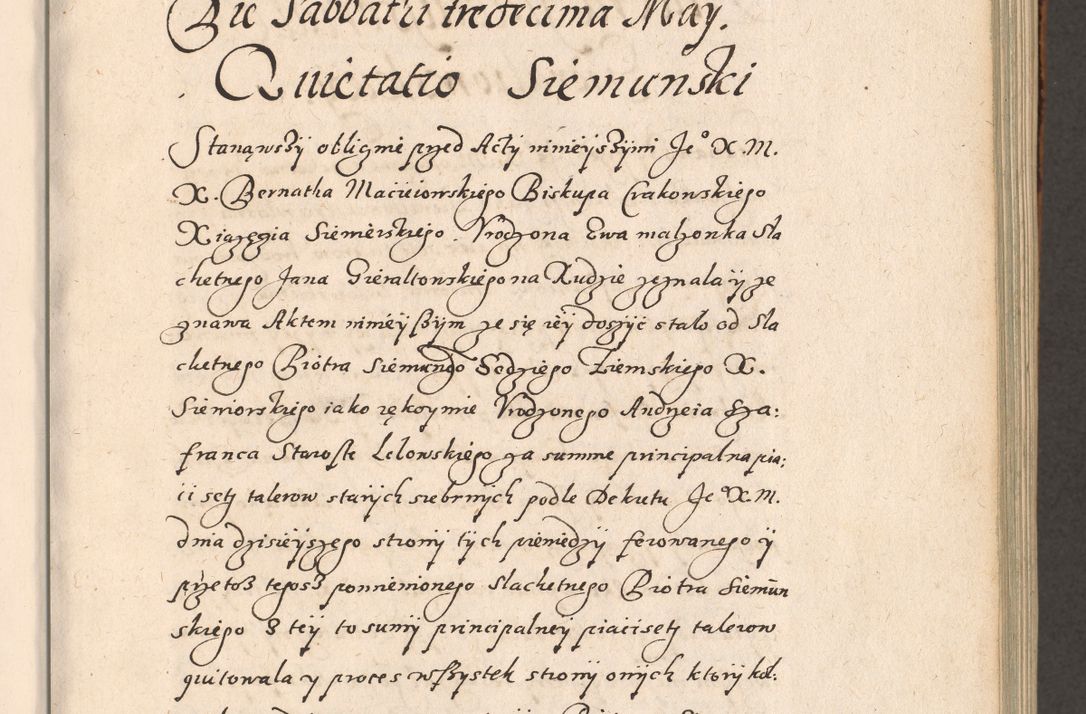 Die Sabbathi tredecima May.
Quietatio Siemunski
Stanąwszÿ oblicznie przed Actÿ ninieÿszÿmi Je° X. M.
X. Bernatha Macieiowskiego Biskupa Crakowskiego
Xiązęgia Siewierskiego. Vrodzona Ewa małzonka Sla
chetnego Jana Gieraltowskiego na Rudzie zeznala ÿ ze
znawa Aktem ninieÿszÿm ze się ieÿ doszÿc stalo od Sla
chetnego Piotra Siemunsko Sędziego Ziemskiego X.
Siewiorskiego iako rękoymie Vrodzonego Andrzeia Sza:
franca Staroste Lelowskiego za summe principalna pia:
ci setÿ talerow starÿch srebrnÿch podle Dekretu Je° X. M.
dnia dzisieÿszego stronÿ tÿch pieniędzÿ ferowanego ÿ
przetoz tegosz pomienionego Slachetnego Piotra Siemun
skiego z teÿ to sumÿ principalneÿ piacisetÿ talerow
quitowala y proces wszÿstek stronÿ onÿch ktorÿ kol: